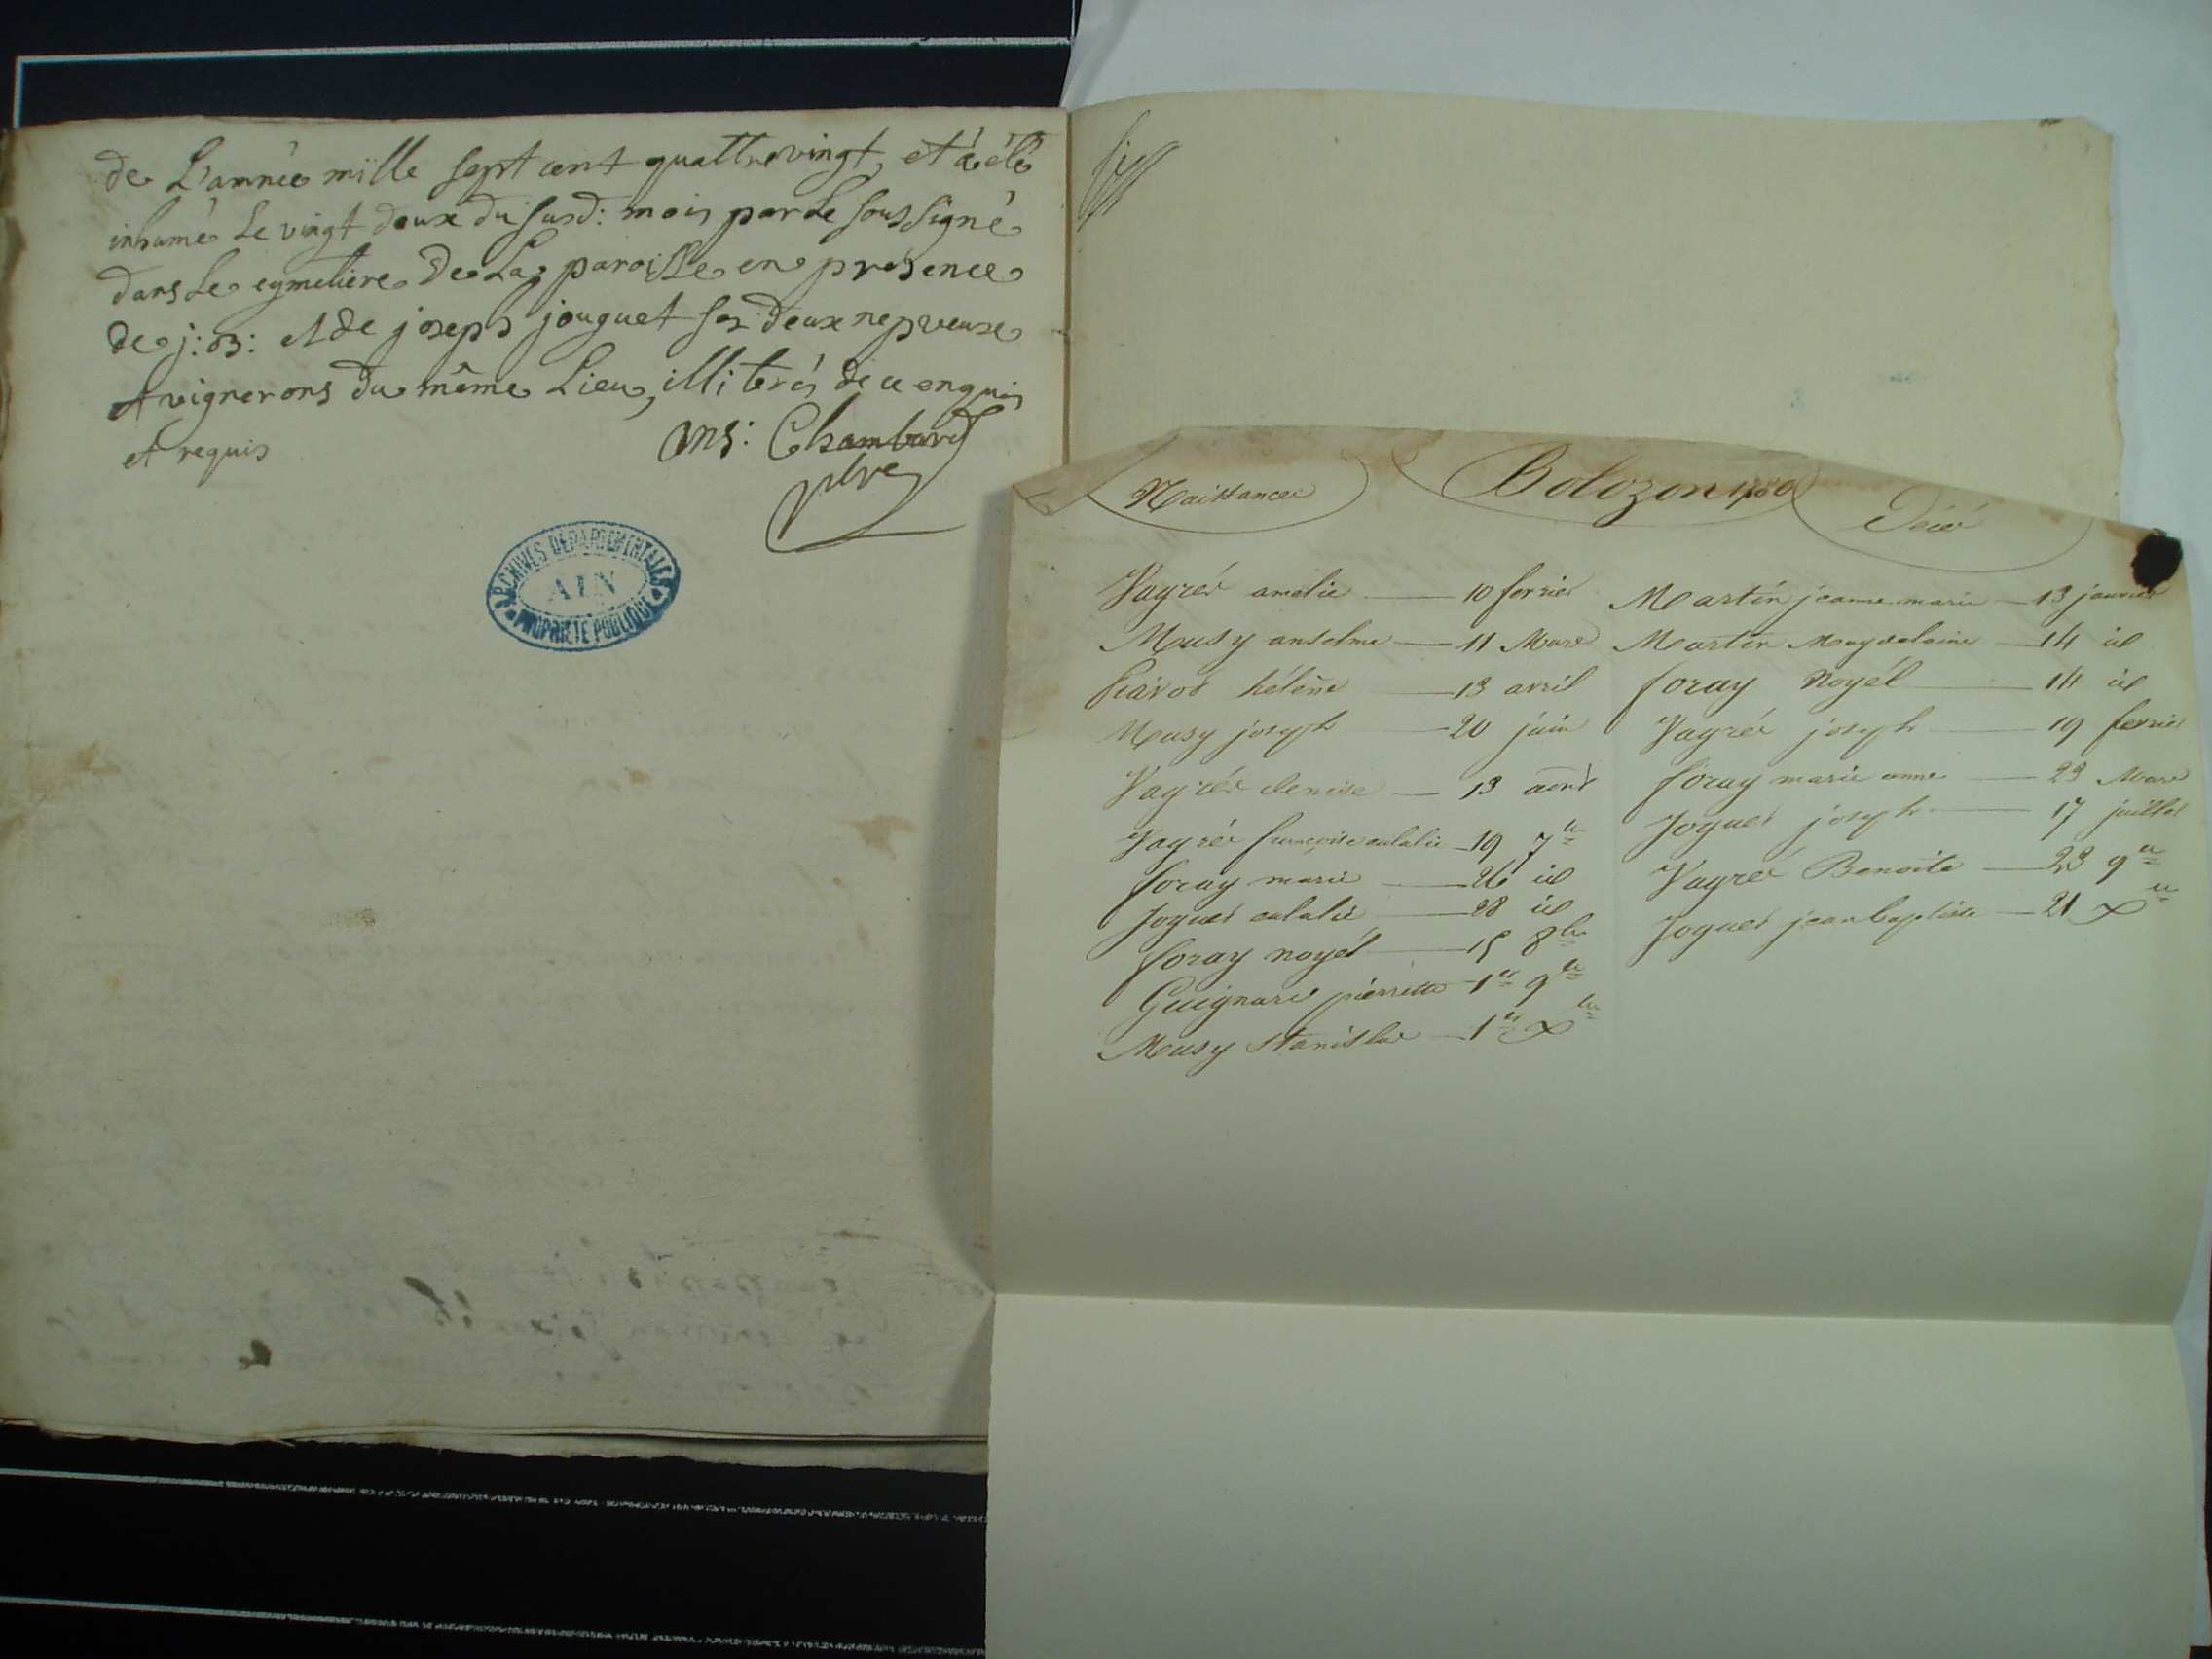 de L'année mille sept cent quattrevingt, et a été
inhumé Le vingt deux du susd: mois par Le soussigné
dans Le cymetiere De La paroisse en presence
de j: B: et de joseph jouguet ses deux nepveux
et vignerons du même Lieu, illiterés de ce enquis
et requis
ans: Chambard
ptre
ARCHIVES DEPARTEMENTALES
AIN
PROPRIETE PUBLIQUE
Naissances
Bolozon 1780
Décès
Vagnés amelie — 10 fevrier
Musy anselme — 11 Mars
hélène — 13 avril
Musy joseph — 20 juin
Vagnés denise — 13 août
Vagnés françoise eulalie — 19 7bre
foray marie — 26 id
Joguet eulalie — 28 id
foray noyél — 15 8bre
Guignard pierrette — 1er 9bre
Musy Stanislas — 1er Xbre
Martin jeanne marie — 13 janvier
Martin Magdelaine — 14 id
foray Noyél — 14 id
Vagnés joseph — 19 fevrier
foray marie anne — 29 Mars
Joguet joseph — 17 juillet
Vagnés Benoite — 23 9bre
Joguet jean baptiste — 21 Xbre